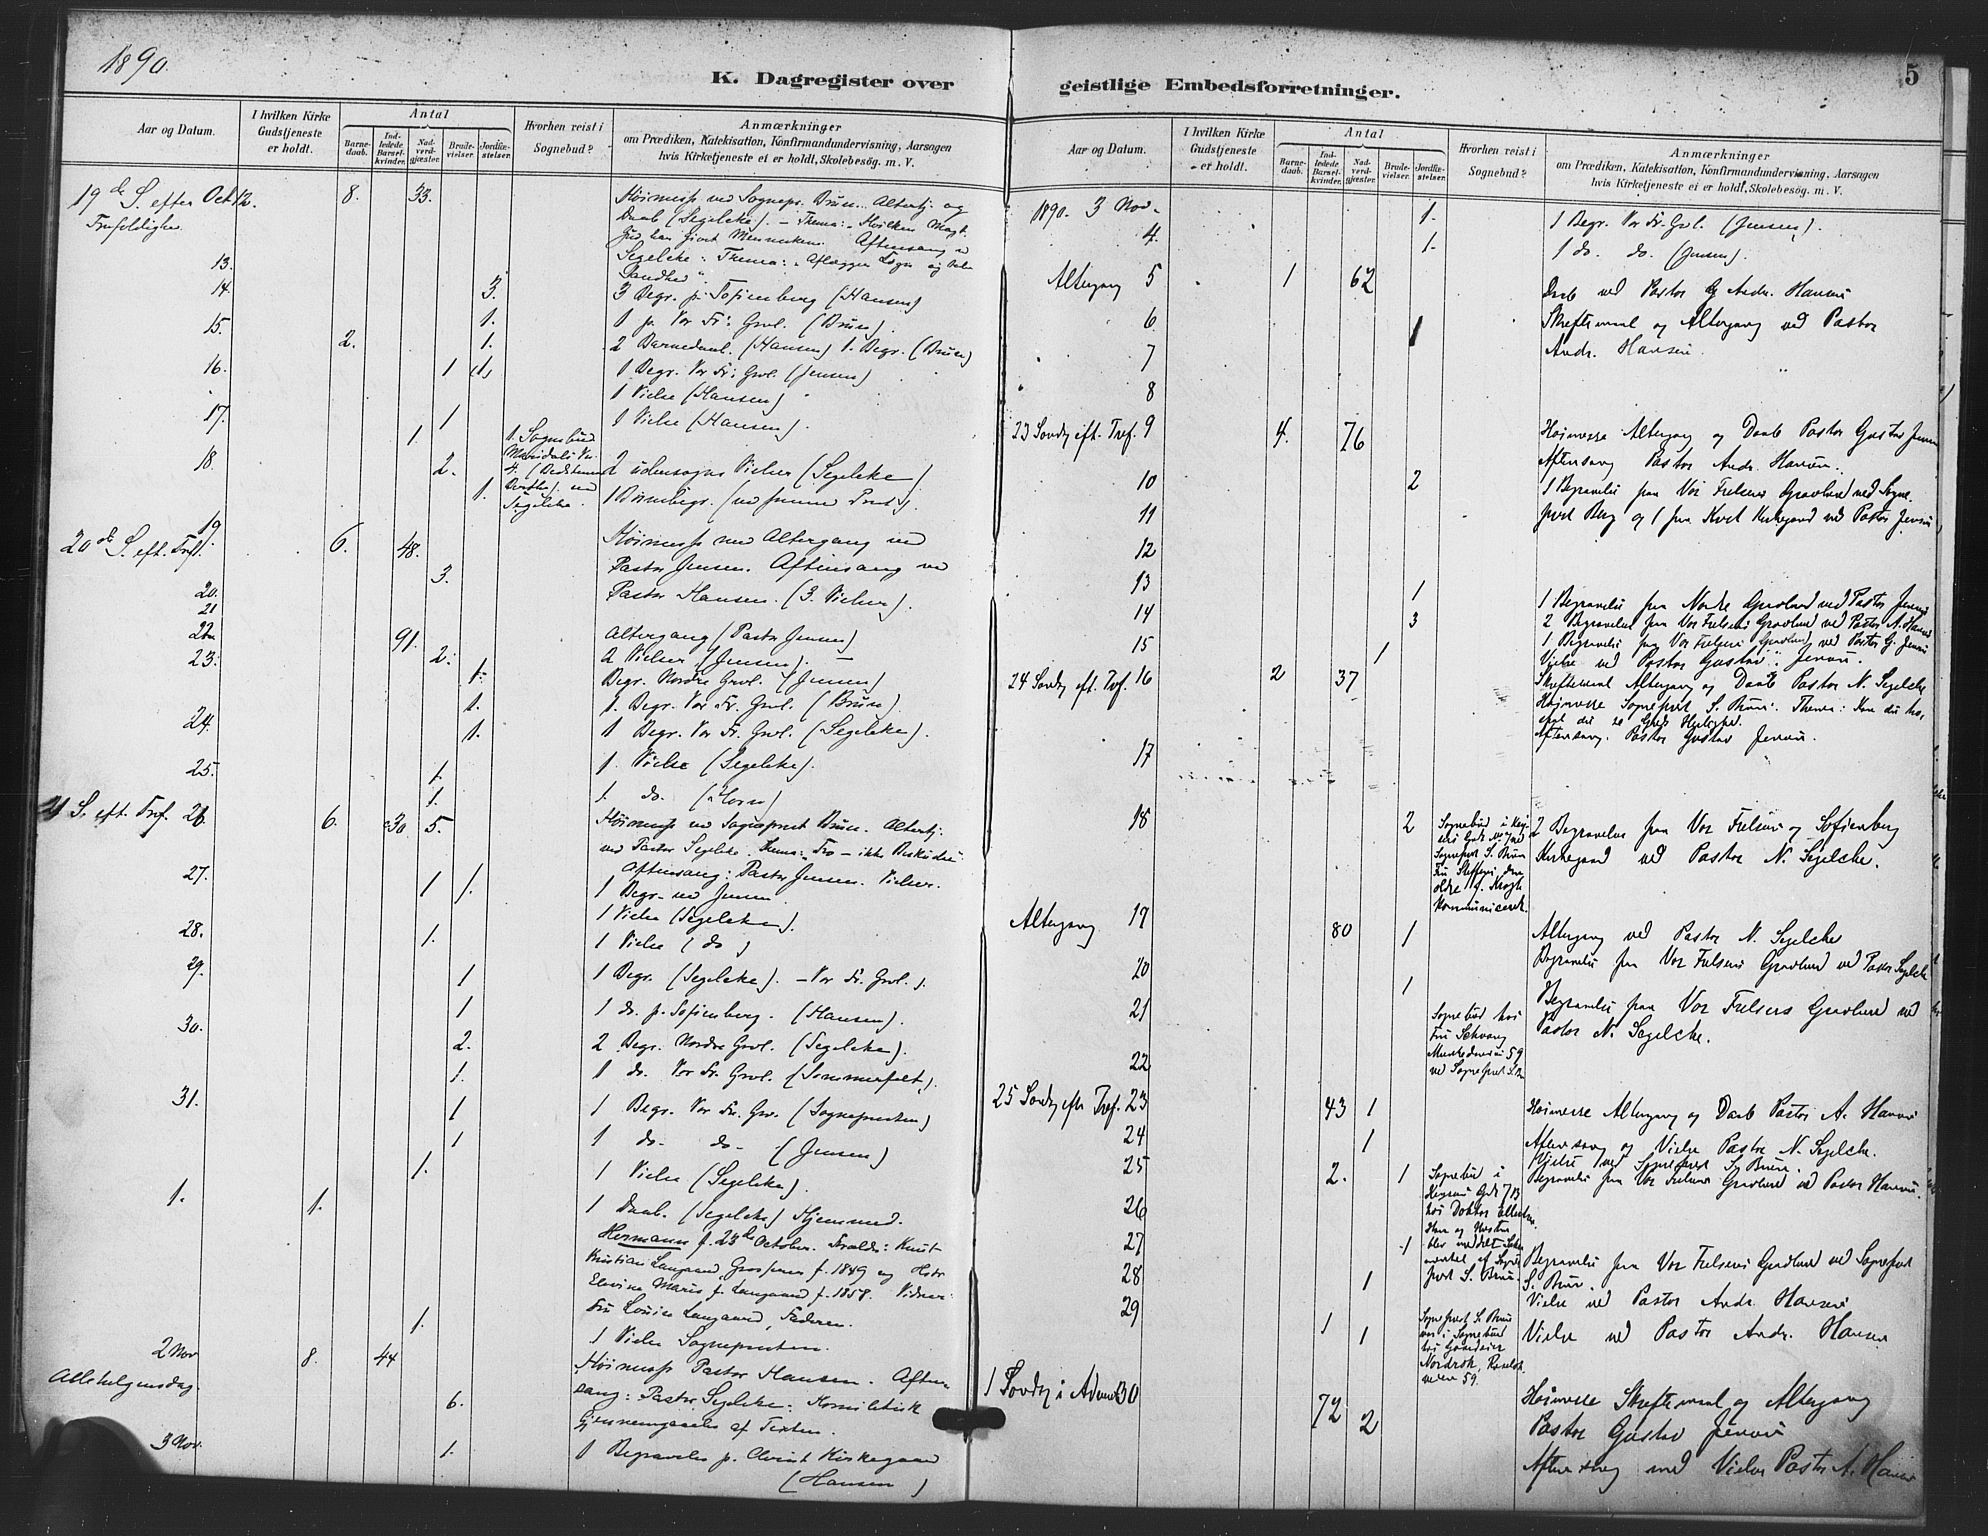 1890.
K. Dagregister over
Aar og Datum.
I hvilken Kirke
Gudstjeneste
er holdt.
Antal
Barne-
daab.
Ind-
ledede
Barsel-
kvinder.
Nad-
verd-
gjæster.
Brude-
vielser.
Jordfæ-
stelser.
Hvorhen reist i
Sognebud?
Anmærkninger
om Prædiken, Katekisation, Konfirmandundervisning, Aarsagen
hvis Kirketjeneste ei er holdt, Skolebesøg. m. V.
19de S. efter Oct 12. 8. 33. Høimesse ved Sognepr. Bruun. Altertj. og
Daab (Segelcke). – Thema: Hvilken Magt
Gud har givet Mennesken. Aftensang v.
13. Segelcke: Thema: "Aflægger Løgn og taler
Sandhed".
14. 3. 3 Begr. p. Sofienberg (Hansen)
1. 1 p. Vor Fr. Grvl. (Bruun).
15. 2. 1. 2 Barnedaab. (Hansen) 1. Begr. (Bruun)
16. 1 1 Begr. Vor Fr. Grvl. (Jensen)
1 Vielse (Hansen)
17. 1 1 Vielse (Hansen).
1. 1. Sognebud
18. 2. 2 udensogns Vielser (Segelcke)
1.
Segelcke.
19.
20de S. eft. Tref. 6. 48. Høimesse med Altergang ved
3. Pastor Jensen. Aftensang ved
20. Pastor Hansen. (3. Vielser).
21
22 91. Altergang (Pastor Jensen)
23. 2. 2 Vielser (Jensen). –
1. Begr. Nordre Grvl. (Jensen)
1. 1. Begr. Vor Fr. Grvl. (Bruun).
24. 1. 1 Begr. Vor Fr. Grvl. (Segelcke).
25. 1. 1. Vielse (Segelcke).
1. 1. do. (Horn)
21 S. eft. Tref. 26. 6. 30. 5. Høimesse ved Sogneprest Bruun. Altertj.
ved Pastor Segelcke. Thema: Tro – ikke
Aftensang: Pastor Jensen. Vielser.
27. 1 1. 1 Begr. ved Jensen
1 Vielse (Segelcke).
28. 1. 1 Vielse (do)
29. 1 1 Begr. (Segelcke). – Vor Fr. Grvl.).
1 1 do. p. Sofienberg. (Hansen).
30. 2. 2 Begr. Nordre Grvl. (Segelcke).
1. 1 do. Vor Fr. Grvl. (Sommerfelt).
31. 1 1 Begr. Vor Fr. Grv. (Sognepresten)
1 1 do. do. (Jensen)
1. 1 Vielse (Segelcke).
1. 1. 1 Daab. (Segelcke) Hjemmed.
Hermann f. 23de October. Forældre: Knut
Kristian Langaard Grosserer f. 1849 og Hstr
Elevine Marie f. Langaard f. 1858. Vidner:
Fru Louise Langaard, Faderen.
1. 1 Vielse Sognepresten.
2 Nov 8. 44 Høimesse Pastor Hansen. Aften-
Allehelgensdag. sang: Pastor Segelcke. Homiletisk
6. Gjennemgaaelse af Texten.
3 Nov. 1. 1 Begravelse p. Christ Kirkegaard
(Hansen)
geistlige Embedsforretninger.
5
Aar og Datum.
I hvilken Kirke
Gudstjeneste
er holdt.
Antal
Barne-
daab.
Ind-
ledede
Barsel-
kvinder.
Nad-
verd-
gjæster.
Brude-
vielser.
Jordfæ-
stelser.
Hvorhen reist i
Sognebud?
Anmærkninger
om Prædiken, Katekisation, Konfirmandundervisning, Aarsagen
hvis Kirketjeneste ei er holdt, Skolebesøg. m. V.
1890. 3 Nov. 1. 1 Begr. Vor Fr. Grvl. (Jensen).
4. 1. 1 do. do. (Jensen).
Altergang 5 1 62 Daab ved Pastor Andr. Hansen
6. 1 Skriftemaal og Altergang ved Pastor
7 Andr. Hansen.
8
23 Søndg eft. Tref. 9 4. 76 Høimesse Altergang og Daab Pastor Gustav Jensen
Aftensang Pastor Andr. Hansen.
10 2 1 Begravelse fra Vor Frelsers Gravlund ved Sogne-
11 prest Bruun og 1 fra Krist Kirkegaard ved Pastor Jensen
12
13 1 1 Begravelse fra Nordre Gravlund ved Pastor Jensen
14 3 2 Begravelser fra Vor Frelsers Gravlund ved Pastor A. Hansen
1 Begravelse fra Vor Frelsers Gravlund ved Pastor G. Jensen
15 1 Vielse ved Pastor Gustav Jensen.
24 Søndg eft. Tref. 16 2 37 Skriftemaal Altergang og Daab Pastor N. Segelcke
Høimesse Sogneprest S. Bruun. Thema: Kan du
Aftensang. Pastor Gustav Jensen.
17
18 2 2 Begravelser fra Vor Frelsers og Sofienberg
Kirkegaard ved Pastor N. Segelcke.
Sognebud i
Sogneprest S. Bruun
Krogh
kommuniceret.
Altergang 19 80 1 Altergang ved Pastor N. Segelcke
Begravelse fra Vor Frelsers Gravlund ved Pastor Segelcke
20 1 Begravelse fra Vor Frelsers Gravlund ved
21 Pastor N. Segelcke.
Sognebud hos
Fru Schwang
Munkedamsvn 59
ved Sogneprest S. Br
22
25 Søndg efter Tref. 23 43 1 Høimesse Altergang og Daab Pastor A. Hansen
Aftensang og Vielse Pastor N. Segelcke.
24 1 Vielse ved Sogneprest S. Bruun.
25 2. 1 Begravelse fra Vor Frelsers Gravlund ved Pastor Hansen.
Sognebud i
hos Doktor
Han og Hustru
blev meddelt
af Sogne-
prest S. Bruun.
26
27 1 Begravelse fra Vor Frelsers Gravlund ved Sogneprest
S. Bruun.
28 1 Vielse ved Pastor Andr. Hansen
29 1 1 Vielse ved Pastor Andr. Hansen
Sogneprest S. Bruun
var i Sognebud
hos Gaardeier
Nordrok,
veien 59.
1 Søndg i Advent 30 72 2 Høimesse Skriftemaal og Altergang
Pastor Gustav Jensen
Aftensang med Vielse Pastor A. Hansen